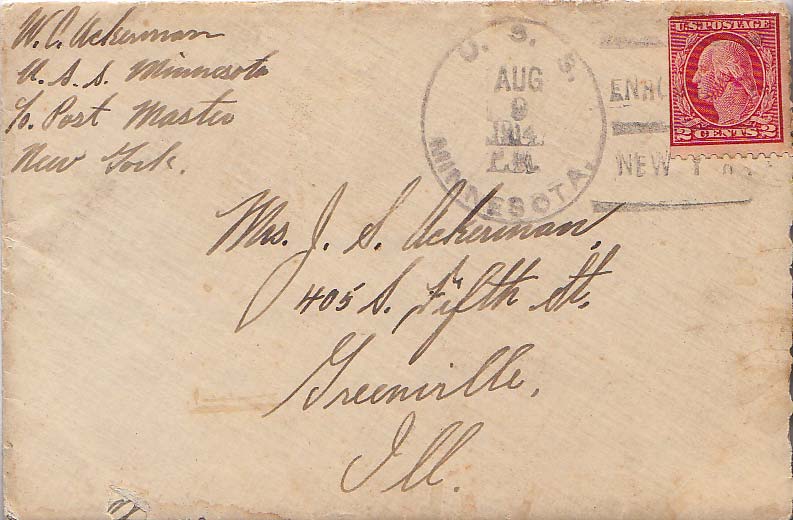 W. C. Ackerman
U. S. S. Minnesota
c/o. Post Master
New York.
U. S. S.
AUG
9
1914
P.M.
MINNESOTA.
ENRO
NEW Y
U.S. POSTAGE
2 CENTS 2
Mrs. J. S. Ackerman,
405 S. Fifth St.
Greenville,
Ill.